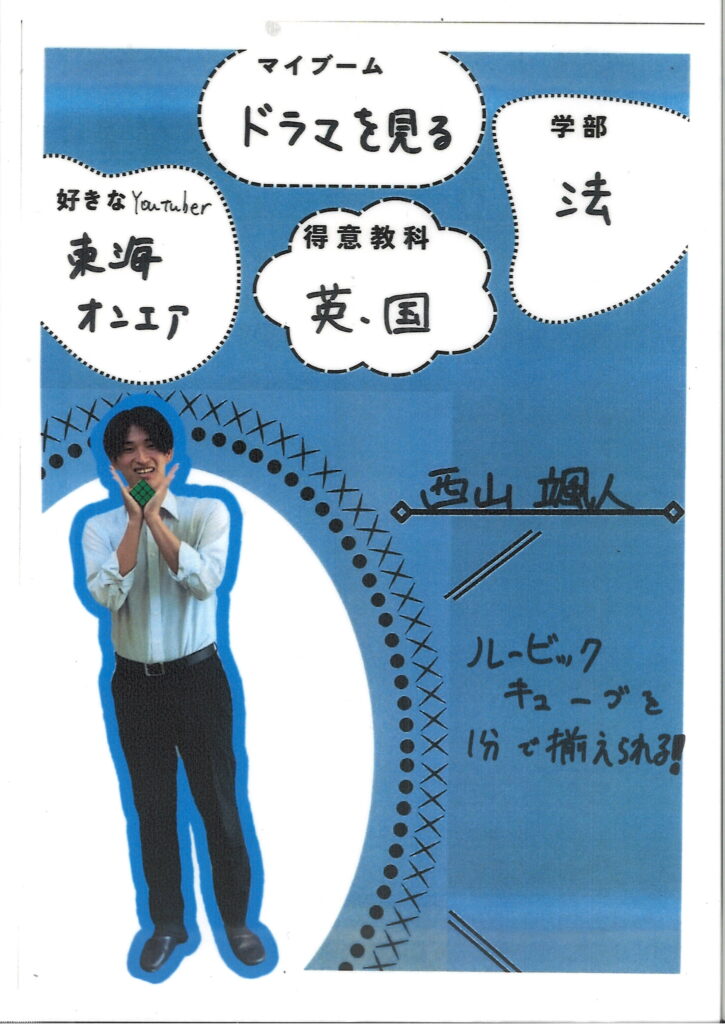 マイブーム
ドラマを見る
学部
法
好きなYoutuber
東海
オンエア
得意教科
英・国
西山 颯人
ルービック
キューブを
1分で揃えられる!!